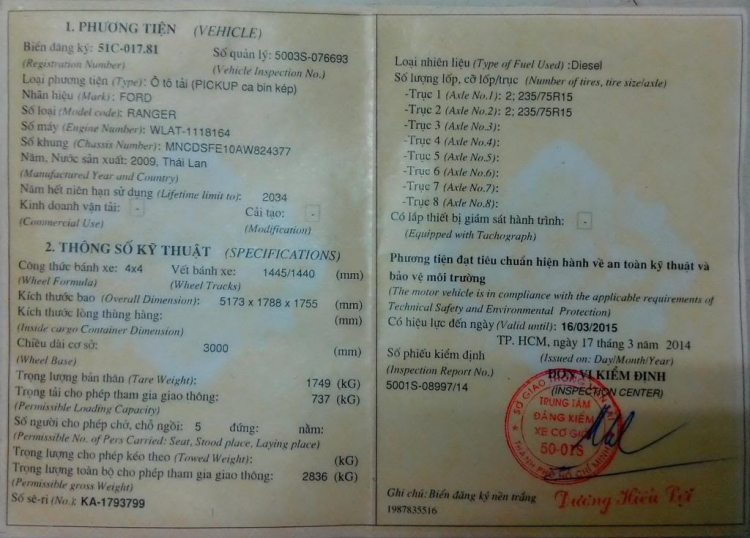 1. PHƯƠNG TIỆN (VEHICLE)
Biển đăng ký: 51C-017.81 Số quản lý: 5003S-076693
(Registration Number) (Vehicle Inspection No.)
Loại phương tiện (Type): Ô tô tải (PICKUP ca bin kép)
Nhãn hiệu (Mark): FORD
Số loại (Model code): RANGER
Số máy (Engine Number): WLAT-1118164
Số khung (Chassis Number): MNCDSFE10AW824377
Năm, Nước sản xuất: 2009, Thái Lan
(Manufactured Year and Country)
Năm hết niên hạn sử dụng (Lifetime limit to): 2034
Kinh doanh vận tải: - Cải tạo: -
(Commercial Use) (Modification)
2. THÔNG SỐ KỸ THUẬT (SPECIFICATIONS)
Công thức bánh xe: 4x4 Vết bánh xe: 1445/1440 (mm)
(Wheel Formula) (Wheel Tracks)
Kích thước bao (Overall Dimension): 5173 x 1788 x 1755 (mm)
Kích thước lòng thùng hàng: (mm)
(Inside cargo Container Dimension)
Chiều dài cơ sở: 3000 (mm)
(Wheel Base)
Trọng lượng bản thân (Tare Weight): 1749 (kG)
Trọng tải cho phép tham gia giao thông: 737 (kG)
(Permissible Loading Capacity)
Số người cho phép chở, chỗ ngồi: 5 đứng: nằm:
(Permissible No. of Pers Carried: Seat, Stood place, Laying place)
Trọng lượng cho phép kéo theo (Towed Weight): (kG)
Trọng lượng toàn bộ cho phép tham gia giao thông: 2836 (kG)
(Permissible gross Weight)
Số sê-ri (No.): KA-1793799
Loại nhiên liệu (Type of Fuel Used) :Diesel
Số lượng lốp, cỡ lốp/trục (Number of tires, tire size/axle)
-Trục 1 (Axle No.1): 2; 235/75R15
-Trục 2 (Axle No.2): 2; 235/75R15
-Trục 3 (Axle No.3):
-Trục 4 (Axle No.4):
-Trục 5 (Axle No.5):
-Trục 6 (Axle No.6):
-Trục 7 (Axle No.7):
-Trục 8 (Axle No.8):
Có lắp thiết bị giám sát hành trình: -
(Equipped with Tachograph)
Phương tiện đạt tiêu chuẩn hiện hành về an toàn kỹ thuật và
bảo vệ môi trường
(The motor vehicle is in compliance with the applicable requirements of
Technical Safety and Environmental Protection)
Có hiệu lực đến ngày (Valid until): 16/03/2015
TP. HCM, ngày 17 tháng 3 năm 2014
Số phiếu kiểm định (Issued on: Day/Month/Year)
(Inspection Report No.) ĐƠN VỊ KIỂM ĐỊNH
5001S-08997/14 (INSPECTION CENTER)
TRUNG TÂM
ĐĂNG KIỂM
XE CƠ GIỚI
50-01S
THÀNH PHỐ HỒ CHÍ MINH
Ghi chú: Biển đăng ký nền trắng
1987835516
Dương Hiếu Lợi